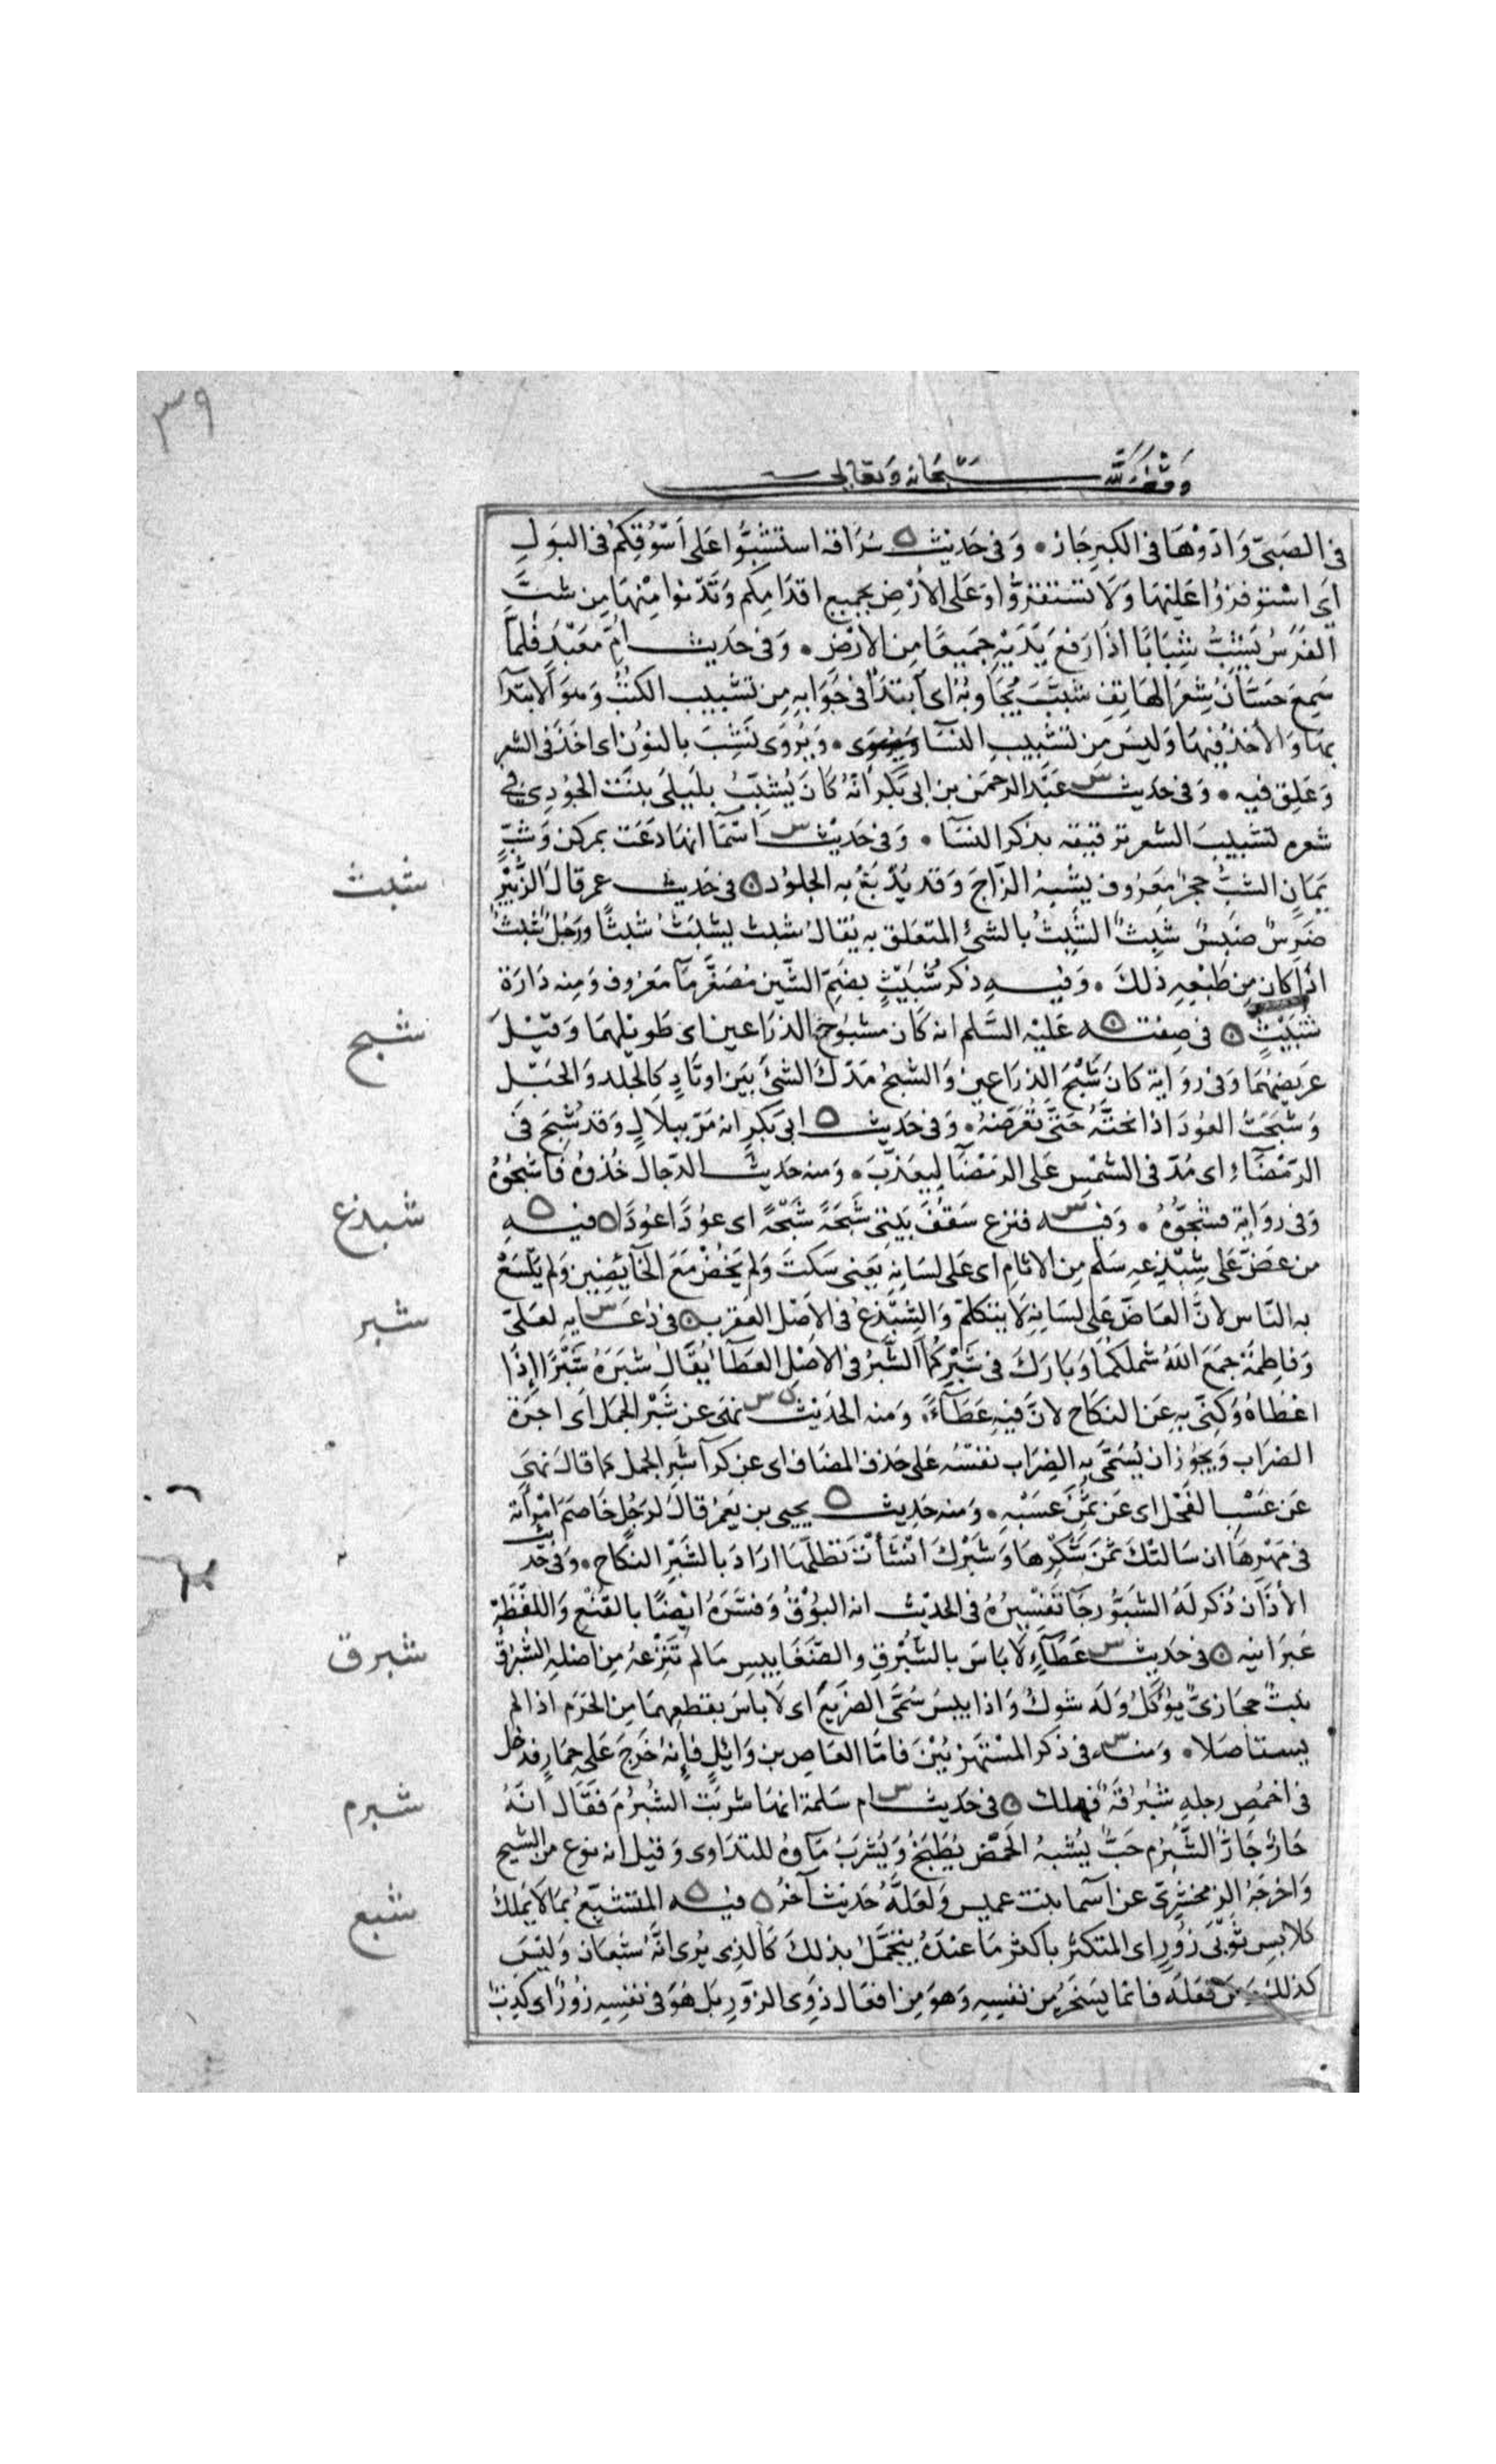 ٣٩
وقف لله سبحانه وتعالى
في الصَبيّ وَادَوْهَا في الكبيرِ جَاز ۰ وَفى حَديث ه سُرَاقة استشبُّوا عَلى اَسْوُقِكُم في البَولِ
اَى اسْتوفزوُا عَليْهَا وَلَا تستقرُّوا عَلى الأرْضِ بجميع اقدَامِكم وَتَدْنوا مِنْهَا مِن شبَّ
الفَرَسُ يَشِبُّ شِبَابًا اذَا رَفعَ يَدَيْهِ جَميعًا مِن الأرْضِ ۰ وَفى حَديث اُمّ مَعْبَدٍ فلمّا
سَمِعَ حَسَّانُ شِعرَ الهَاتِفِ شبَّبَ يُجَاوبُهُ اى ابتدَأ فى جَوَابهِ مِن تشبيب الكتُب وَهوَ الابتدآ
بهَا وَالأخذُ فيهَا وَليسَ مِن تشبيبِ النسَا ۰ وَيُرْوَى نَشِبَ بالنوُن اى اخذَ فى الشعر
وَعَلِق فيه ۰ وَفى حَديث س عَبْد الرحمَن بن ابى بَكرٍ اَنّهُ كَانَ يُشبّبُ بلَيلَى بنْت الجُودِى في
شعره تشبيبَ الشعر ترقيقه بذكر النسَآ ۰ وَفى حَديْث س اسْمَا انهَا دَعَت بمركن وَشبٍّ
شبث
يَمَانٍ الشبُّ حجرٌ مَعرُوف يشبهُ الزاجَ وَقد يُدْبَغُ به الجلوُد ه فى حَديث عمر قالَ الزُّبَيْرُ
ضَرِسٌ ضَبِسٌ شَبِثٌ الشَّبِثُ بالشئ المتعَلق به يُقالُ شبث يشبَث شبَثًا وَرَجُلٌ شبث
اذا كان مِن طَبْعِهِ ذلكَ ۰ وَفيهِ ذكر شُبَيْثٍ بضَمّ الشّين مُصَغّر مَآ مَعرُوف وَمِنه دَارَة
شبح
شُبَيْثٍ ه فى صِفته ه عَليْهِ السَّلم انه كَان مشبُوحَ الذرَاعين اى طَويلهمَا وَقيْلَ
عَرِيضَهُمَا وَفى روَايةٍ كانَ شَبْحَ الذِرَاعين وَالشبحُ مَدّكَ الشئَ بَينَ اوتَادٍ كالجلد وَالحَبْل
وَشبَحتُ العوُدَ اذا نحتَّهُ حَتّى تُعَرّضَهُ ۰ وَفى حَديث ه ابى بَكرٍ انه مَرّ ببِلالٍ وَقد شُبحَ فى
الرّمْضَآءِ اى مُدّ فى الشمْسِ عَلى الرمْضَآ ليعَذَّبَ ۰ وَمنه حَديث الدّجال خُذوُهُ فَاشبحُوُهُ
شبدع
وَفى روَاية فشجّوُهُ ۰ وَفيه س فنزع سَقفَ بَيتى شَبْحَةً شَبْحَةً اى عوُدًا عوُدًا ه فيه ه
من عَضَّ عَلى شِبْدِعهِ سَلم مِن الاثام اى عَلى لسَانهِ يَعنى سَكتَ وَلم يَخُضْ مَعَ الخآئِضِين وَلم يَلْسَعْ
شبر
به النّاس لانَّ العَاضّ عَلى لسَانهِ لَا يتكلّم وَالشِبْدِعُ فى الاَصْل العَقرب ه فى دُعَايه س لعَلىّ
وَفاطِمَةَ جمعَ اللهُ شملكمَا وَبَارَكَ فى شَبْرِكُمَا الشَّبْرُ فى الاصْل العَطَآ يُقَالُ شبَرَهُ شَبْرًا إذا
اعْطَاهُ وَكنّى بهِ عَن النكاح لانَّ فيهِ عَطَآءً ۰ وَمنه الحَديث س نهَى عَن شَبْرِ الجمَل اَى اجرَة
الضرَاب وَيجوُز ان يُسَمَّى بهِ الضِرَاب نفسُه عَلى حَذف المضَاف اى عن كرآ شبر الجمل كما قالَ نهَى
عَن عَسْب الفَحْل اى عَن ثمَن عَسْبهِ ۰ وَمنه حَديث ه يحيى بن يَعمُر قالَ لرَجُلٍ خَاصَم امْرَأته
فى مَهْرهَا ان سَالتكَ ثمَنَ شَكْرِهَا وَشَبْركَ انشَأتَ تطلّهَا ارَادَ بالشَبْر النكاح ۰ وَفى حَديث
الأذَآن ذُكرَ لَهُ الشبّوُر جَآ تَفْسِيرُهُ فى الحَديْث انه البوُقُ وَفسّرَهُ ايْضًا بالقُبْع وَاللفْظَة
شبرق
عبرَانيه ه فى حَديث س عَطَآءٍ لَا بَاسَ بالشِبْرِقِ والضّغَابيسِ مَا لم تنزعْهُ مِن اصْلهِ الشبْرِق
نَبتٌ حجَازىّ يؤكَلُ وَلَه شوك وَاذا يبسَ سُمّى الضريع اى لَا باسَ بقطعِهِمَا مِن الحَرَم اذا لم
يستاصَلا ۰ وَمنه س فى ذكر المسْتهَزئيْنَ فامّا العَاص بن وَائلٍ فإنه خَرجَ عَلى حمَارٍ فدخل
شبرم
فى اخمَصِ رجلهِ شبْرقَة فهلك ه فى حَديث س ام سَلمة انهَا شربَت الشُبرُمَ فقَال انّهُ
حَارٌ جَارٌّ الشُّبْرُم حَبٌّ يُشبهُ الحمّص يُطبَخُ وَيُشرَبُ مَآوهُ للتدَاوى وَقيل انه نوع من الشيح
شبع
وَاخرجَهُ الزمخشَرِىّ عن اسما بنت عميس وَلعَلّهُ حَديث آخرُ ه فيه ه المتشبّعُ بمَا لَا يَملك
كلابسِ ثوْبَى زُورٍ اى المتكثرُ باكثر مَا عندَهُ يتجمّلُ بذلكَ كَالذى يُرِى انَّهُ شبْعَان وَليْسَ
كذلك وَمن فعَلَه فانمَا يسْخَرُ من نفسِهِ وَهوَ مِن افعَال ذوِى الزّوْرِ بَل هُوَ فى نفسِهِ زُورٌ اى كَذِب